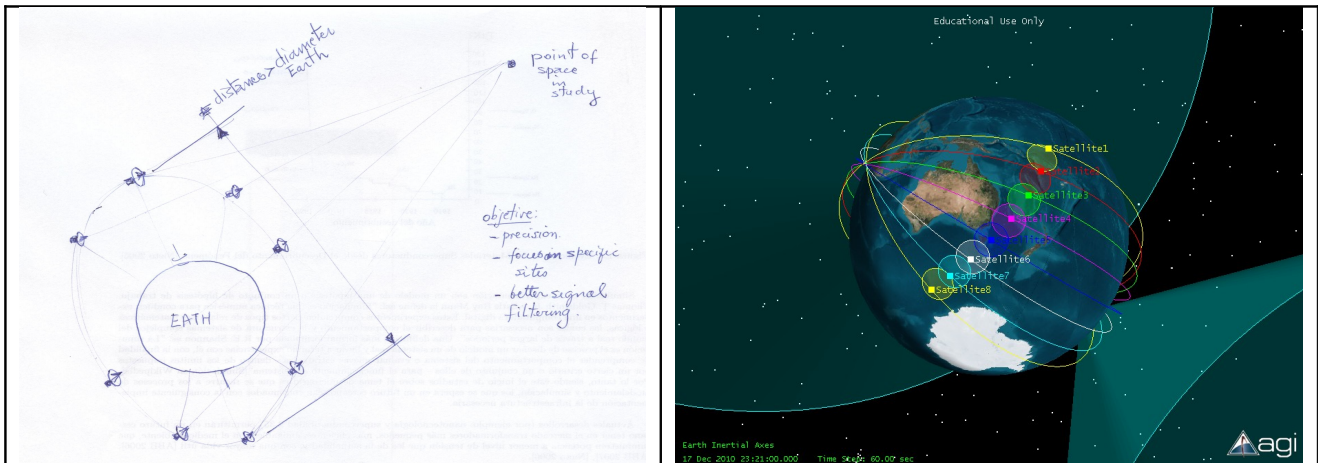 distances > diameter
Earth
point of
space
in
study
objetive:
- precision.
- focus in specific
sites
- better signal
filtering.
EATH
Educational Use Only
Satellite1
Satellite3
Satellite4
Satellite6
Satellite7
Satellite8
Earth Inertial Axes
17 Dec 2010 23:21:00.000 Time Step: 60.00 sec
agi